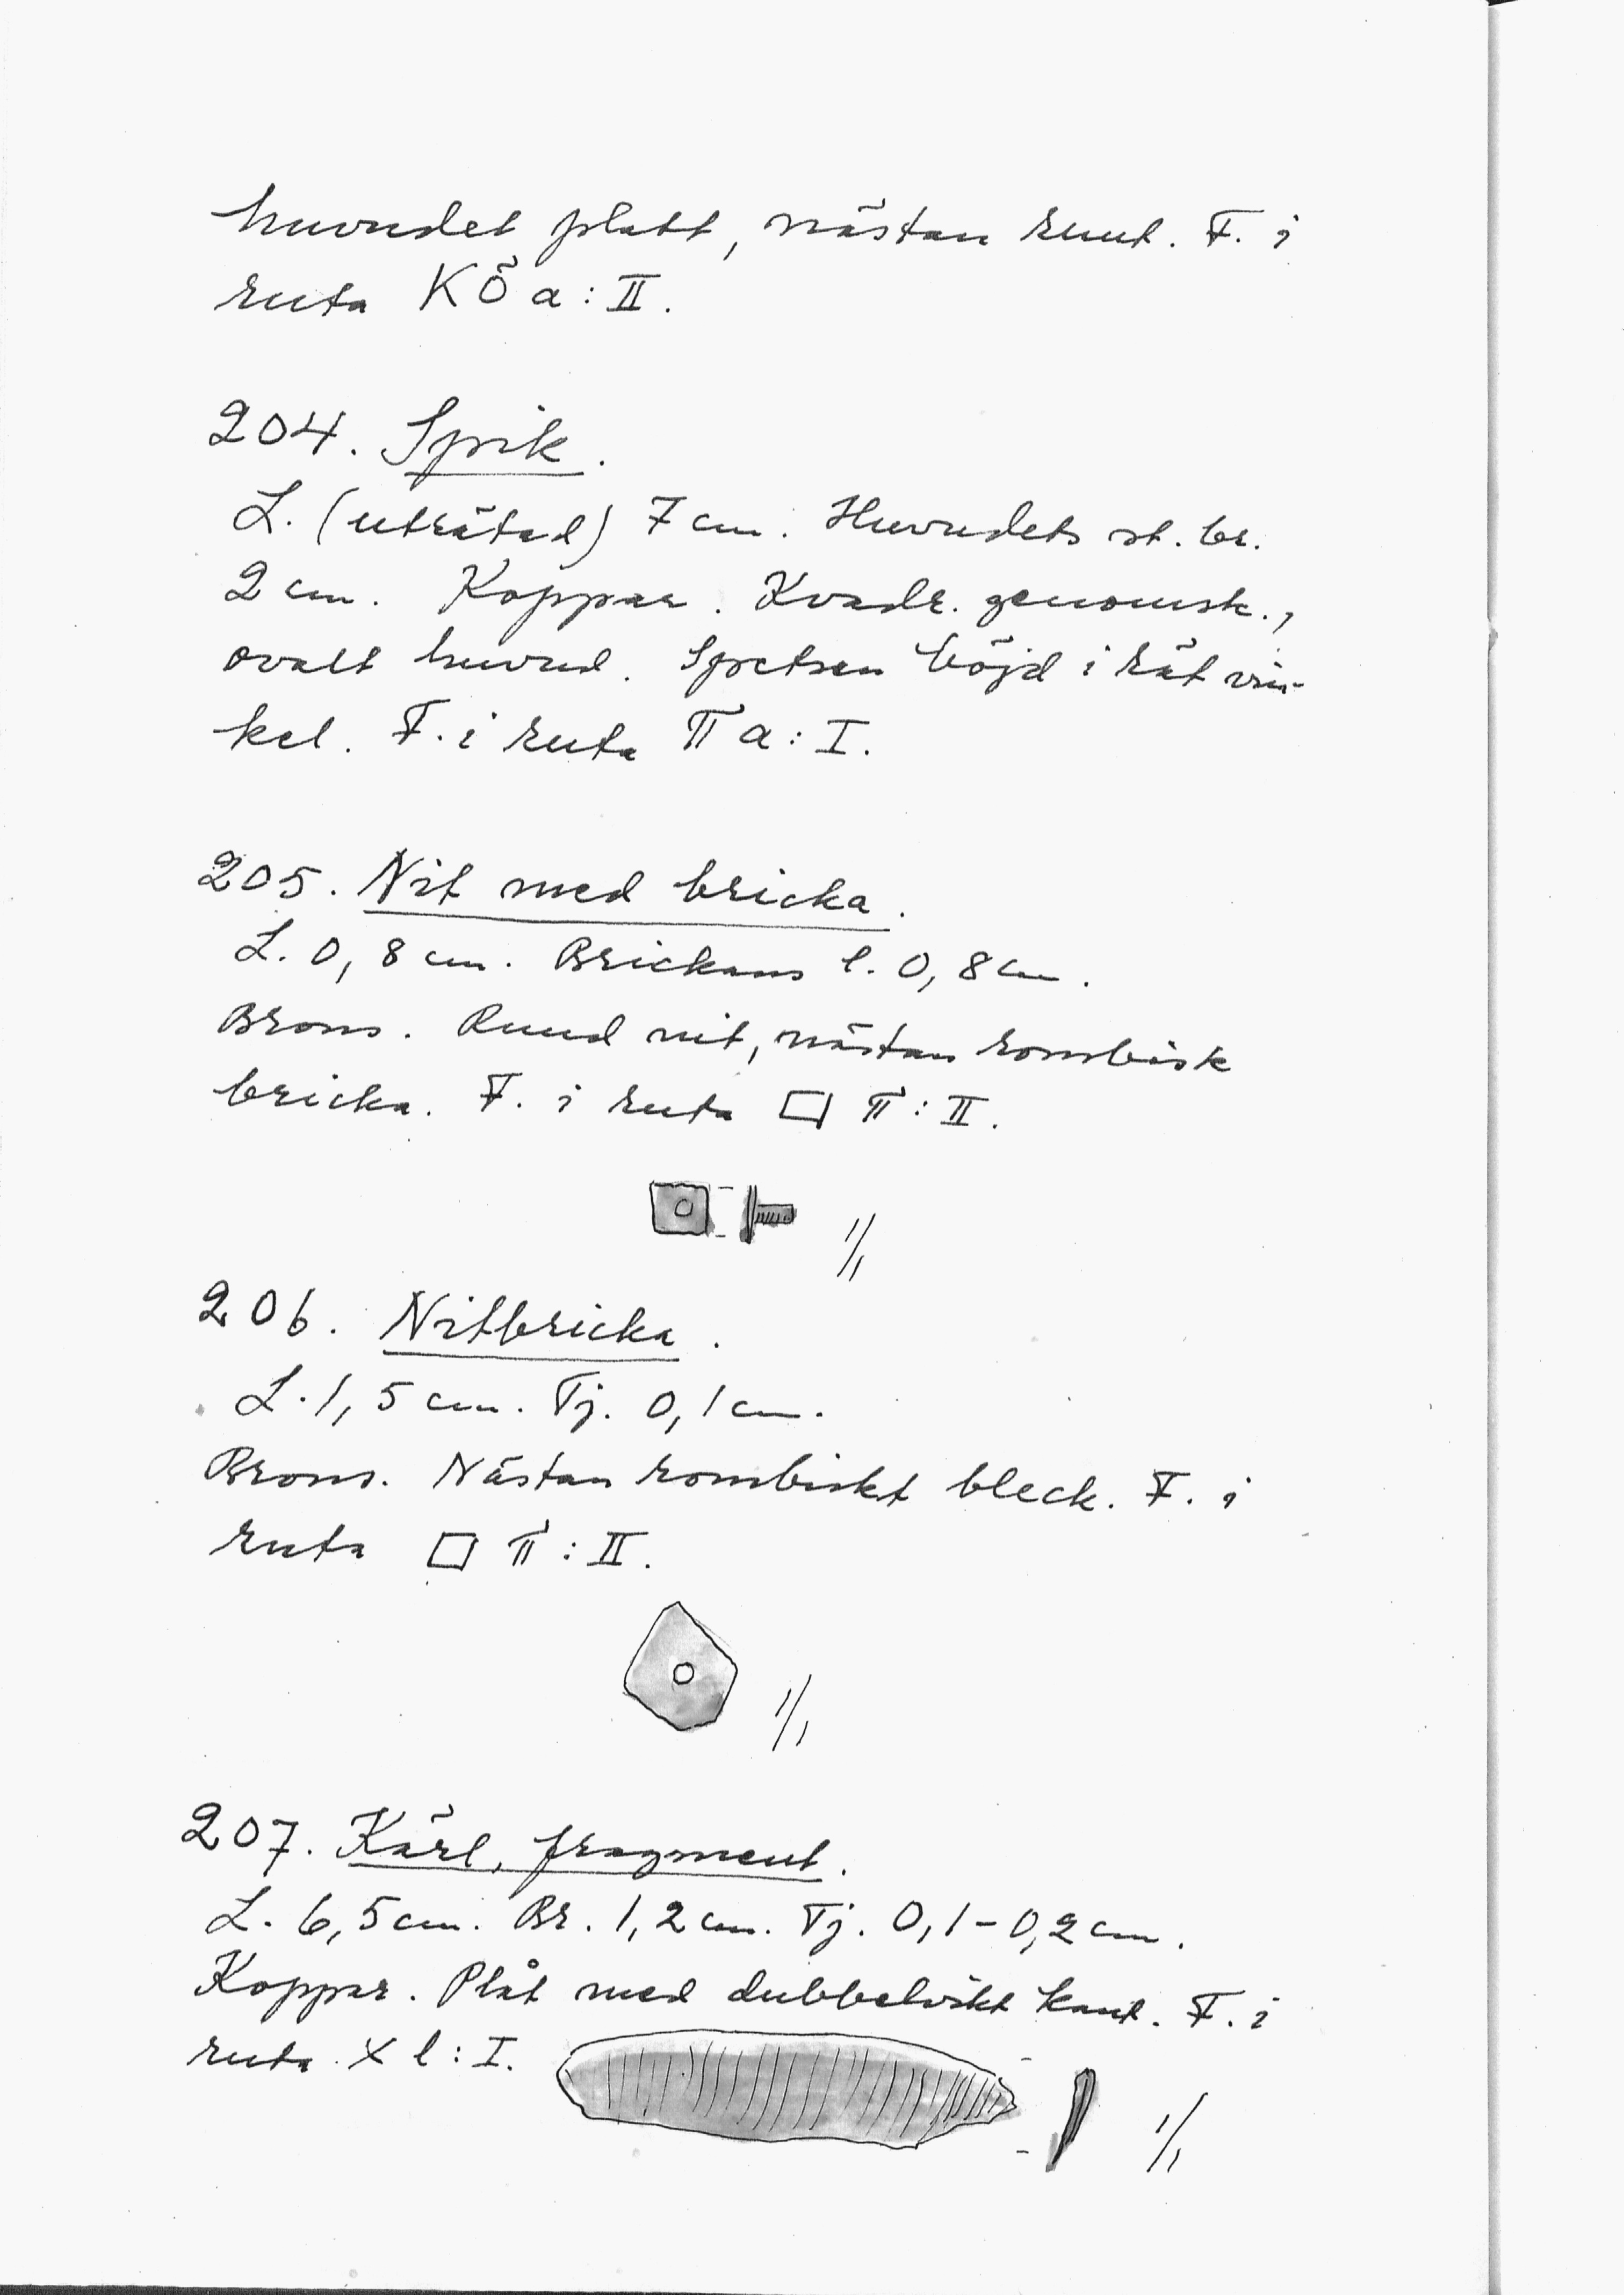 huvudet platt, nästan runt. F. i
ruta KÖ a : II.
204. Spik.
L. (uträtad) 7 cm. Huvudets st. br.
2 cm. Koppar. Kvadr. genomsk.,
ovalt huvud. Spetsen böjd i rät vin-
kel. F. i ruta π a : I.
205. Nit med bricka.
L. 0,8 cm. Brickans l. 0,8 cm.
Brons. Rund nit, nästan rombisk
bricka. F. i ruta □ π : II.
1/1
206. Nitbricka.
L. 1,5 cm. Tj. 0,1 cm.
Brons. Nästan rombiskt bleck. F. i
ruta □ π : II.
1/1
207. Kärl, fragment.
L. 6,5 cm. Br. 1,2 cm. Tj. 0,1 - 0,2 cm.
Koppar. Plåt med dubbelvikt kant. F. i
ruta X l : I.
1/1